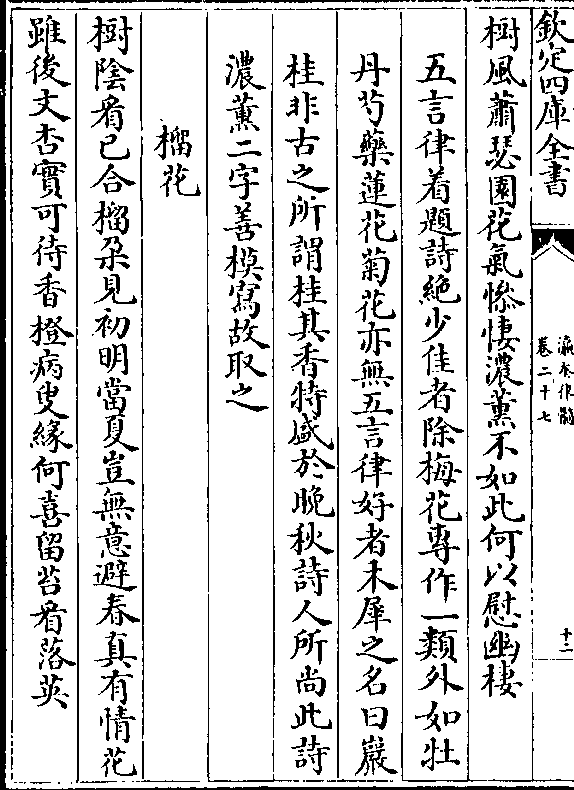 欽定四庫全書
瀛奎律髓
卷二十七
十二
樹風蕭瑟園花氣慘悽濃薰不如此何以慰幽棲
五言律着題詩絶少佳者除梅花專作一類外如牡
丹芍藥蓮花菊花亦無五言律好者木犀之名曰巖
桂非古之所謂桂其香特盛於晚秋詩人所尚此詩
濃薰二字善模寫故取之
榴花
樹陰看已合榴朶見初明當夏豈無意避春真有情花
雖後丈杏實可待香橙病叟緣何喜留苔看落英